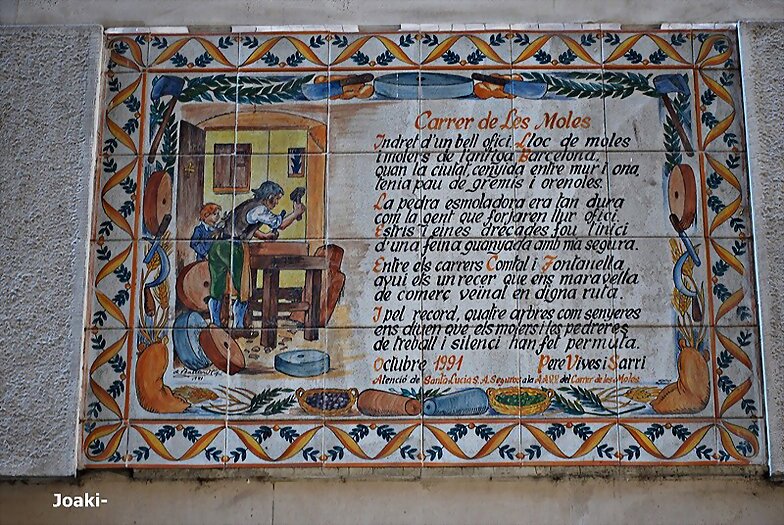 Carrer de Les Moles
Indret d'un bell ofici. Lloc de moles
i molers de l'antiga Barcelona,
quan la ciutat, cenyida entre mur i ona,
tenia pau de gremis i orenoles.
La pedra esmoladora era tan dura
com la gent que forjaren llur ofici.
Estris i eines d'ecades fou l'inici
d'una feina guanyada amb mà segura.
Entre els carrers Comtal i Fontanella
avui és un recer que ens maravella
de comerç veïnal en digna ruta.
I pel record, quatre arbres com senyeres
ens diuen que els molers i les pedreres
de treball i silenci han fet permuta.
Octubre 1991 Pere Vives i Sarri
Atenció de Santa Lucia S.A. Seguros a la A.A.V.V. del Carrer de les Moles
1991
Joaki-